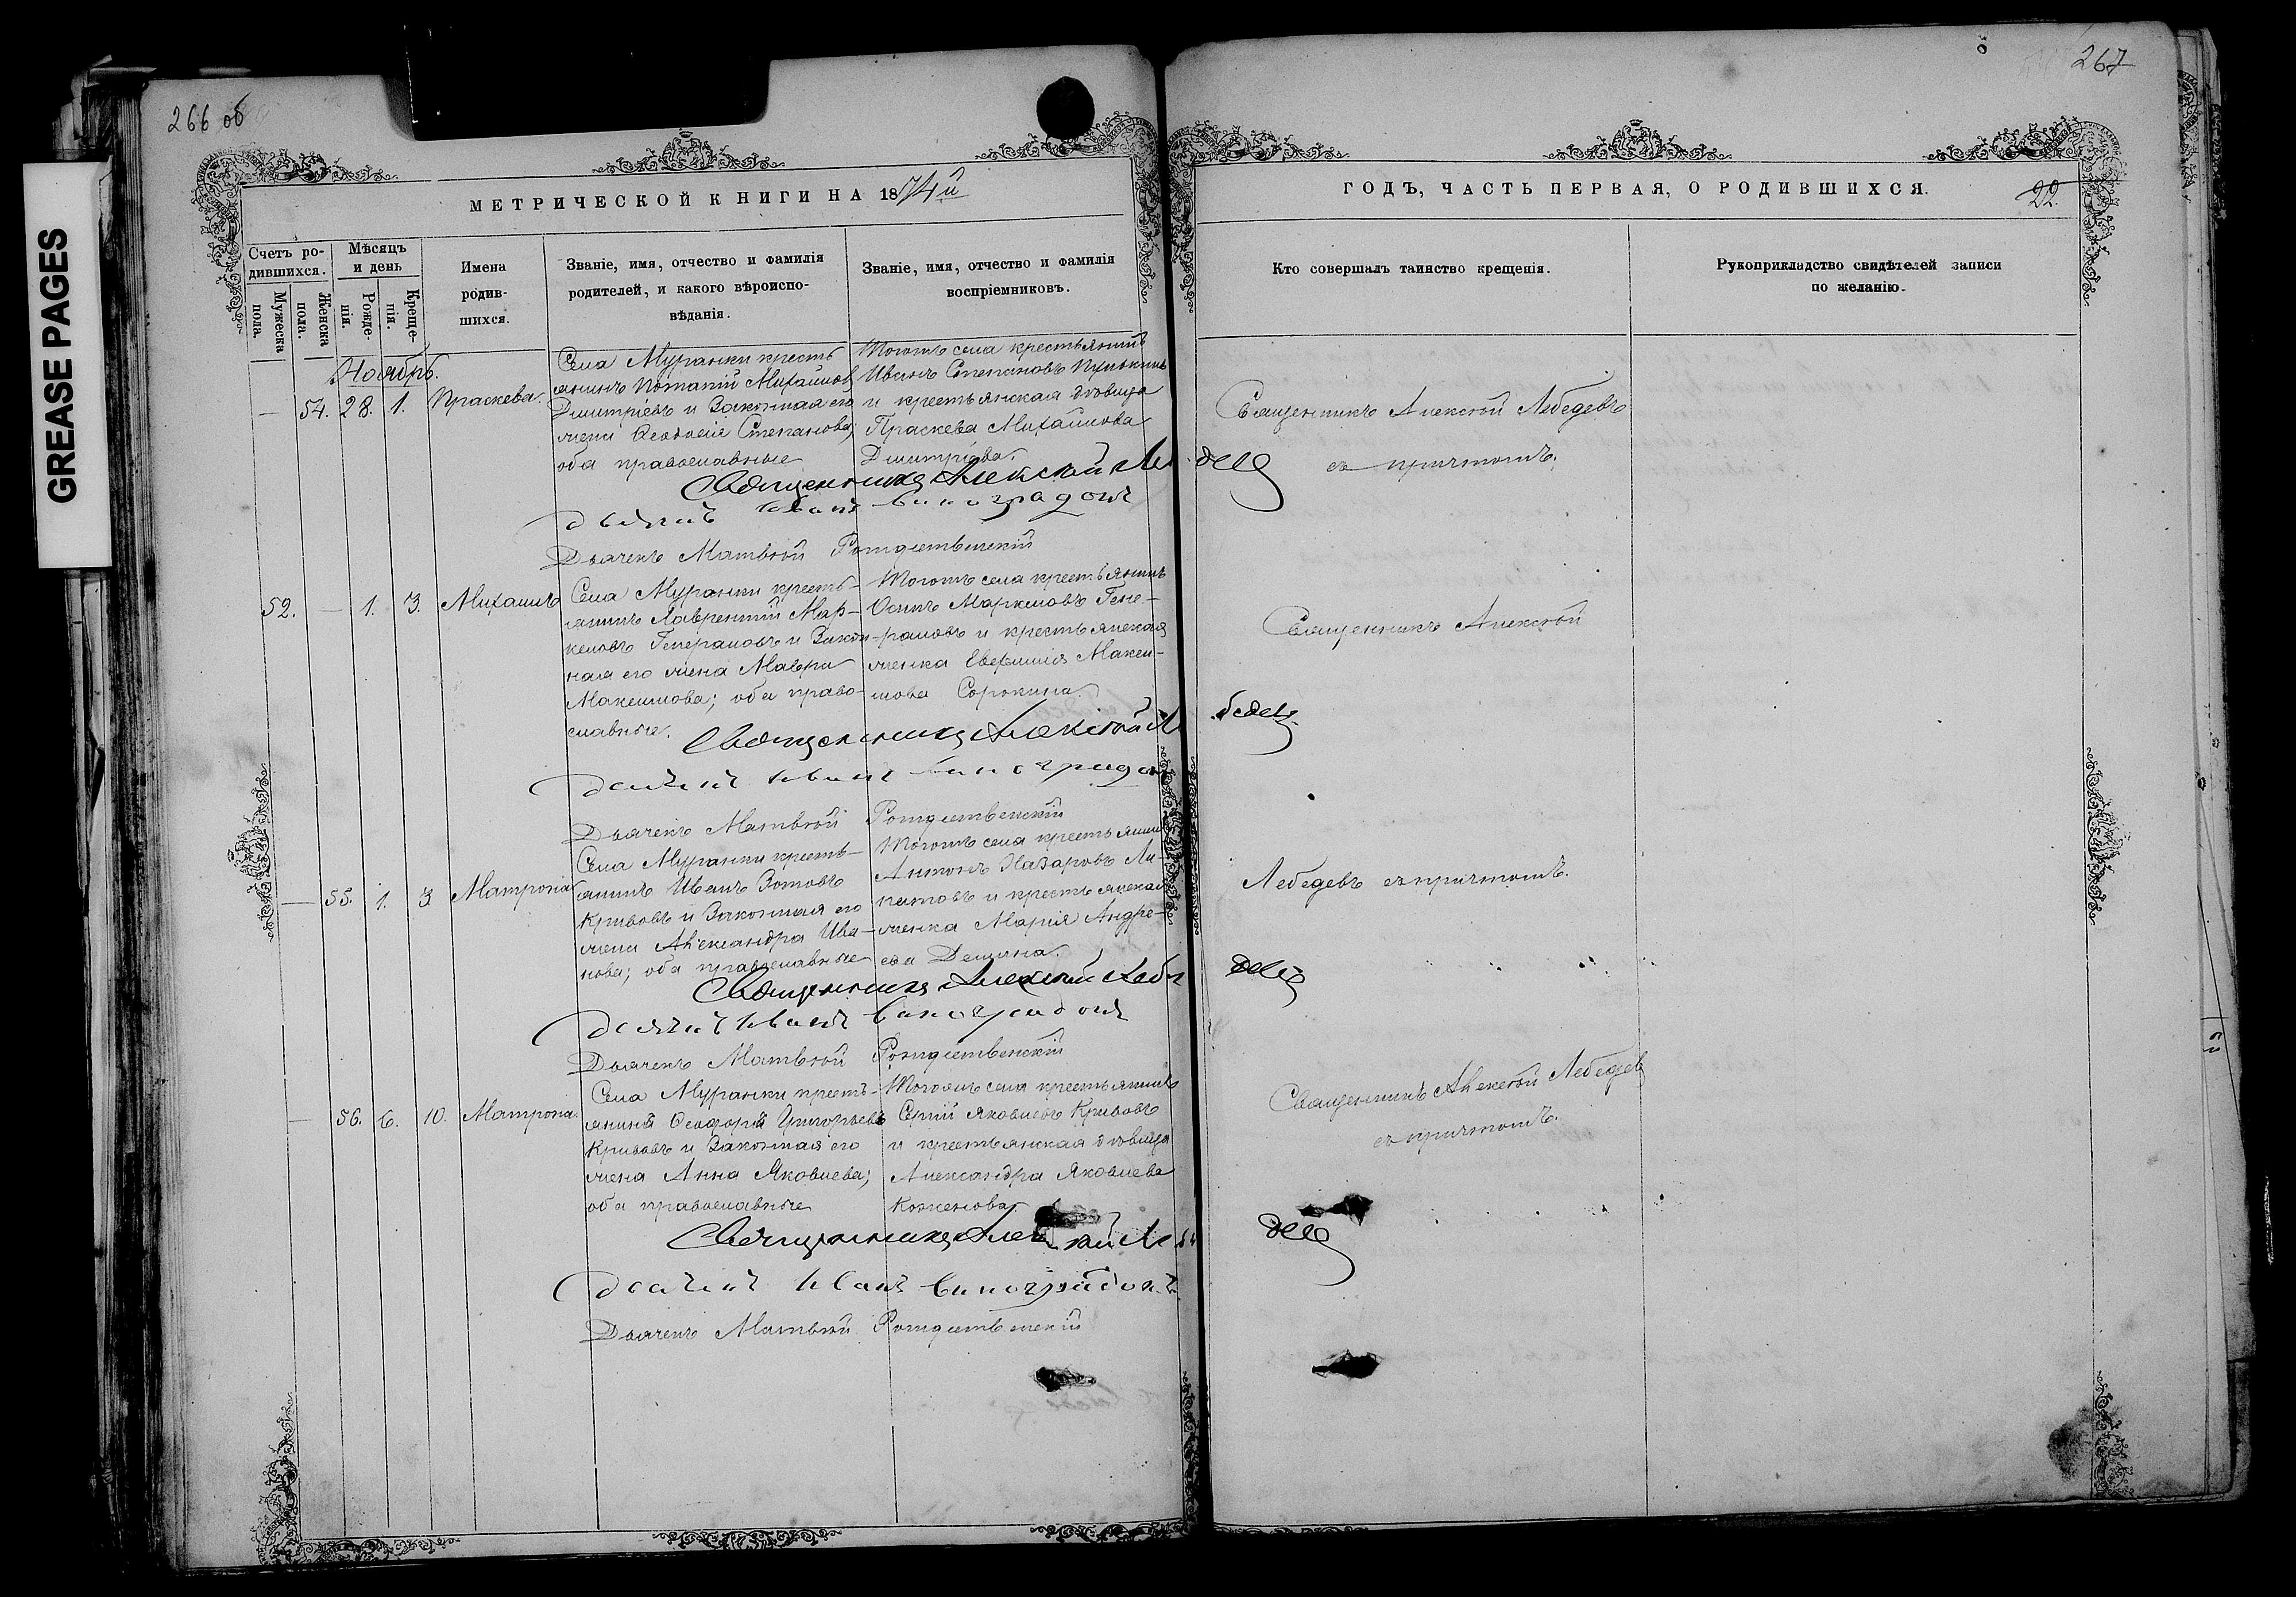 266 об
267
GREASE PAGES
МЕТРИЧЕСКОЙ КНИГИ НА 1874й
ГОДЪ, ЧАСТЬ ПЕРВАЯ, О РОДИВШИХСЯ.
22.
Счетъ ро-
дившихся.
Мужеска
пола.
Женска
пола.
Мѣсяцъ
и день
Рожде-
нія.
Креще-
нія.
Имена
родив-
шихся.
Званіе, имя, отчество и фамилія
родителей, и какого вѣроиспо-
вѣданія.
Званіе, имя, отчество и фамилія
воспріемниковъ.
Кто совершалъ таинство крещенія.
Рукоприкладство свидѣтелей записи
по желанію.
Ноябрь.
— 54. 28. 1. Праскева.
Села Муранки кресть
янинъ Потапій Михайловъ
Дмитріевъ и Законная его
жена Ѳеодосія Степанова;
оба православные
Тогожъ села крестьянинъ
Иванъ Степановъ
и крестьянская дѣвица
Праскева Михайлова
Дмитріева.
Священникъ Алексѣй Лебедевъ
съ причтомъ.
Священникъ Алексѣй Ле
бедевъ
Дьячекъ Иванъ Виноградовъ
Дьячекъ Матвѣй Рождественскій
52. — 1. 3. Михаилъ
Села Муранки кресть-
янинъ Лаврентій Мар-
келовъ Генераловъ и Закон-
ная его жена Мавра
Максимова; оба право-
славные.
Тогожъ села крестьянинъ
Осипъ Маркеловъ Гене-
раловъ и крестьянская
женка Евфимія Макси-
мова Сорокина.
Священникъ Алексѣй
Священникъ Алексѣй Ле
бедевъ
Дьячекъ Иванъ Виноградовъ
Дьячекъ Матвѣй Рождественскій
— 55. 1. 3. Матрона
Села Муранки кресть-
янинъ Иванъ Зотовъ
Кривовъ и Законная его
жена Александра Ива-
нова; оба православные
Тогожъ села крестьянинъ
Антонъ Назаровъ
и крестьянская
женка Марія Андре-
ева
Лебедевъ съ причтомъ.
Священникъ Алексѣй Лебе
девъ
Дьячекъ Иванъ Виноградовъ
Дьячекъ Матвѣй Рождественскій
— 56. 6. 10. Матрона.
Села Муранки кресть-
янинъ Ѳеодоръ Григорьевъ
Кривовъ и Законная его
жена Анна Яковлева;
оба православные
Тогожъ села крестьянинъ
Сергій Яковлевъ Кривовъ
и крестьянская дѣвица
Александра Яковлева
Священникъ Алексѣй Лебедевъ
съ причтомъ.
Священникъ Алексѣй Ле
бедевъ
Дьячекъ Иванъ Виноградовъ
Дьячекъ Матвѣй Рождественскій